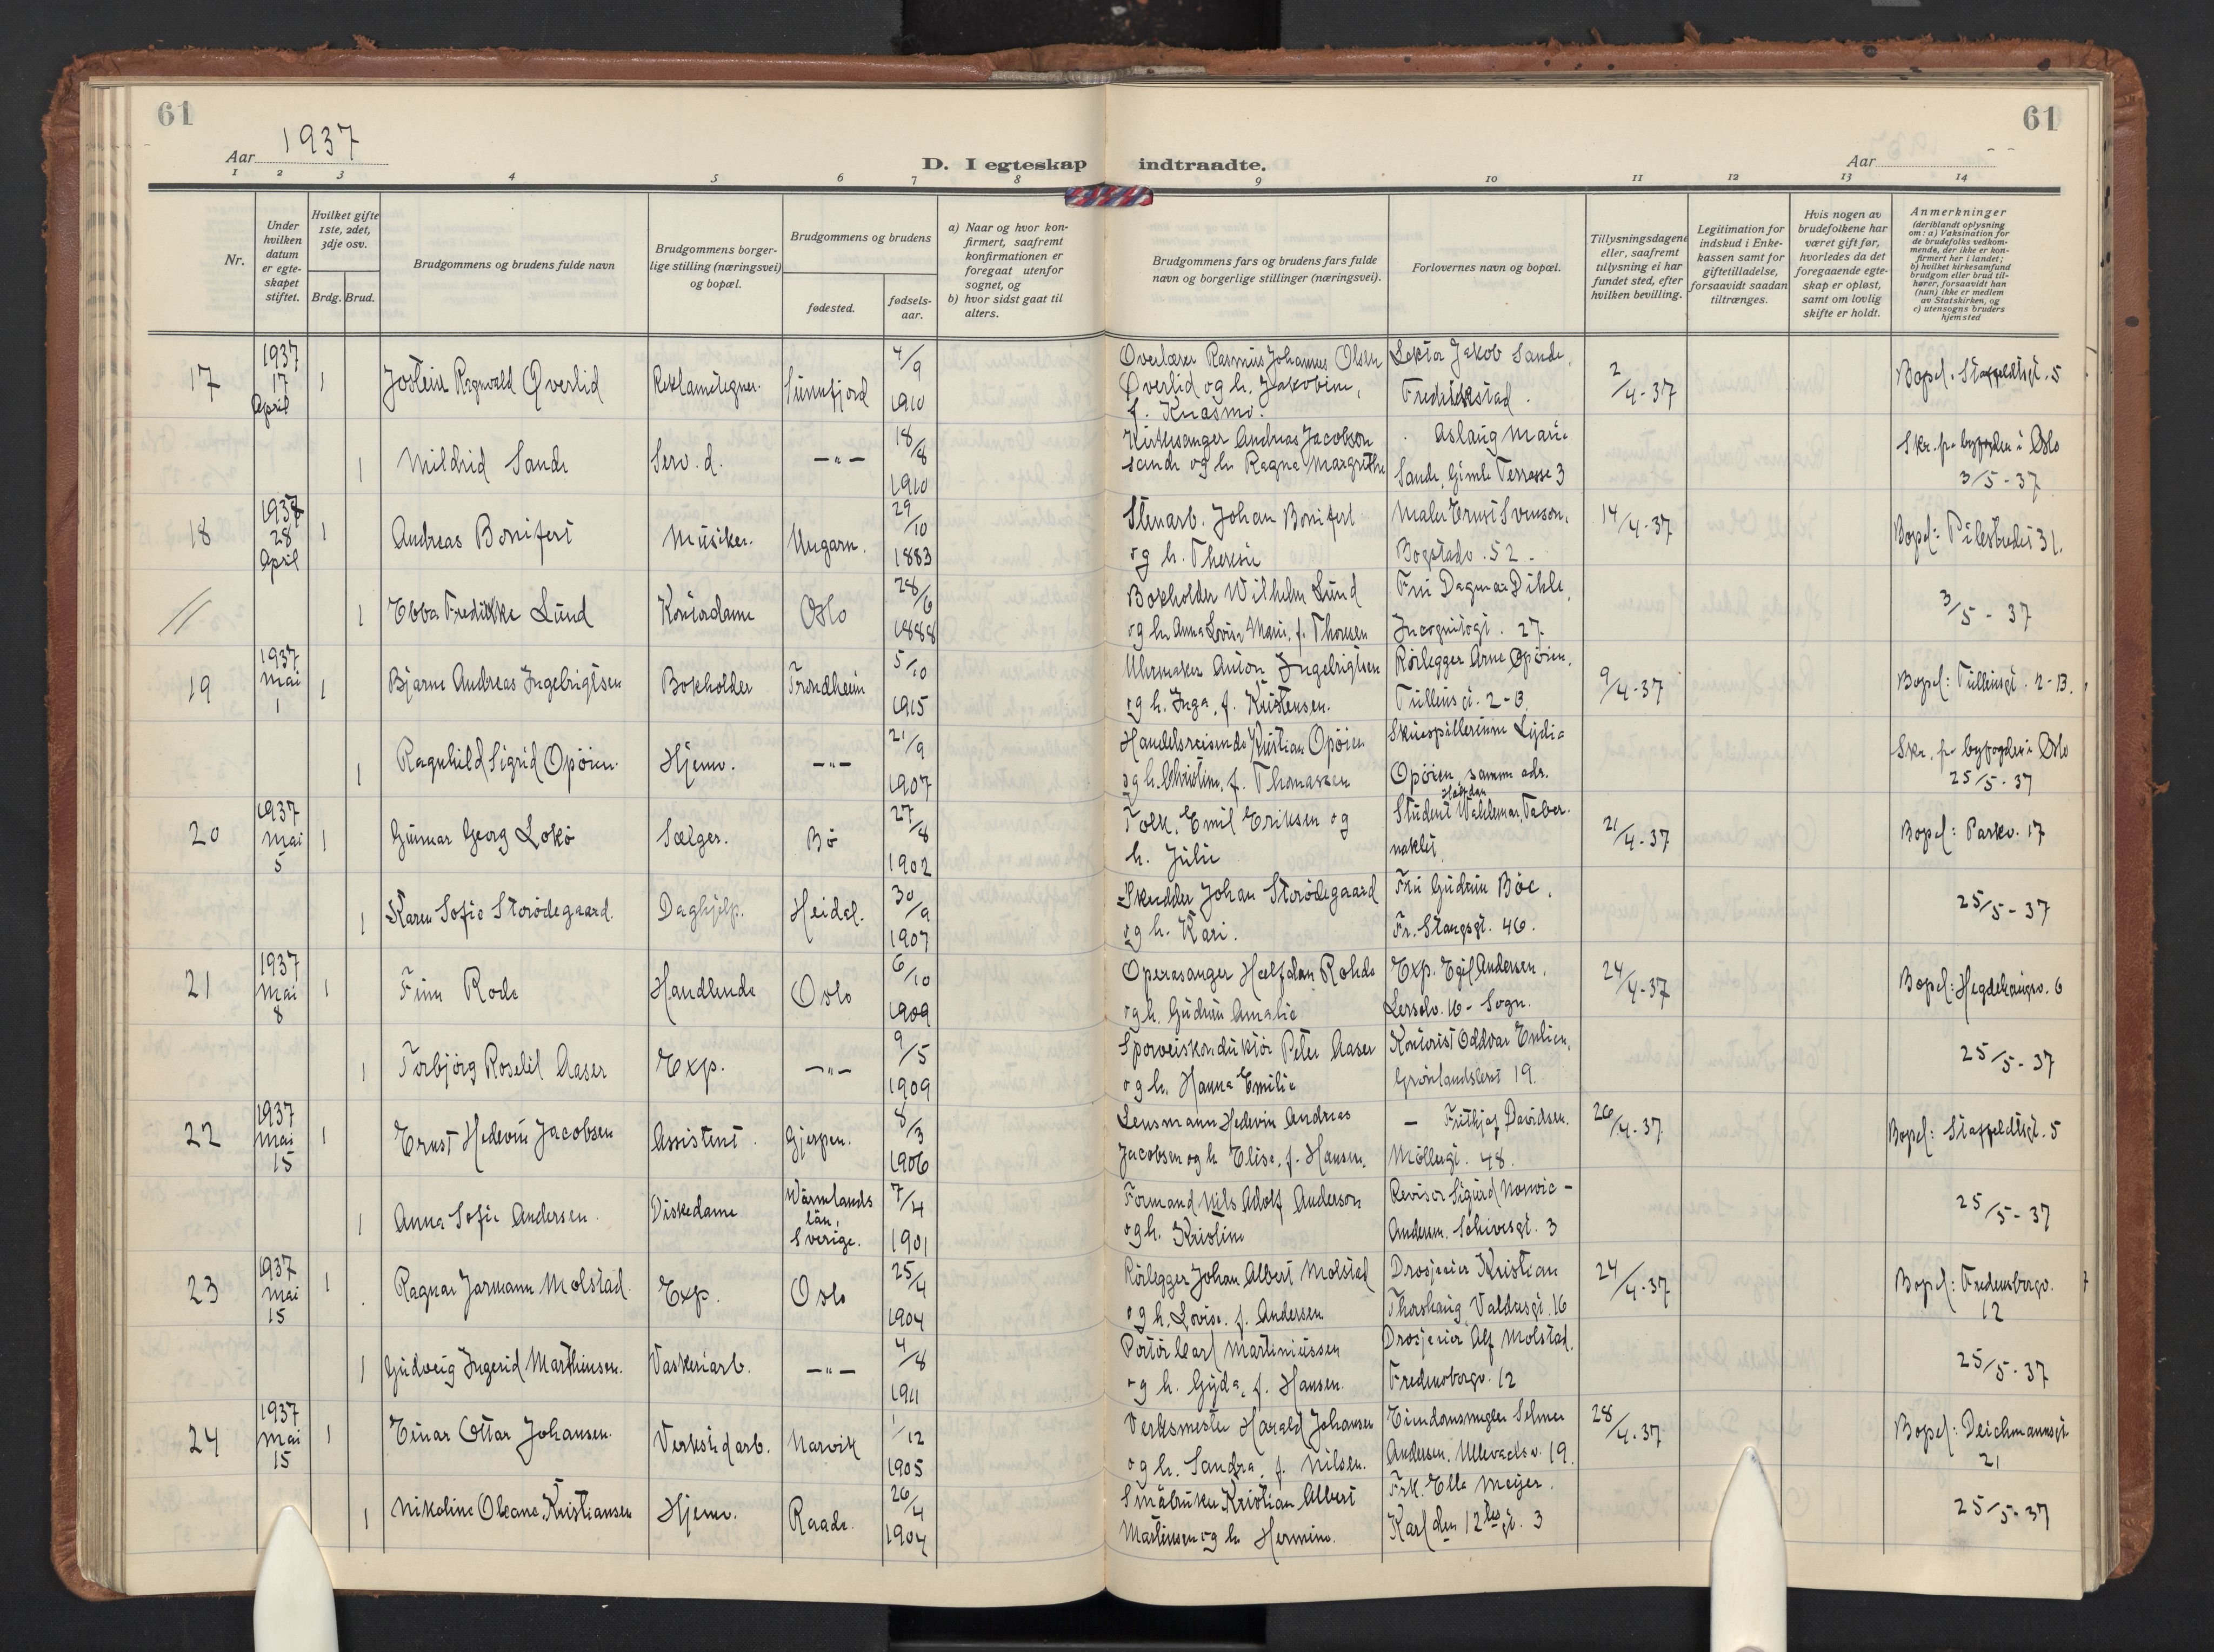 61
61
Aar 1937
D. I egteskap indtraadte.
Aar
1 2 3 4 5 6 7 8 9 10 11 12 13 14
Nr.
Under hvilken datum er egteskapet stiftet.
Hvilket gifte 1ste, 2det, 3dje osv.
Brdg. Brud.
Brudgommens og brudens fulde navn
Brudgommens borgerlige stilling (næringsvei) og bopæl.
Brudgommens og brudens
fødested.
fødselsaar.
a) Naar og hvor konfirmert, saafremt konfirmationen er foregaat utenfor sognet, og
b) hvor sidst gaat til alters.
Brudgommens fars og brudens fars fulde navn og borgerlige stillinger (næringsvei).
Forlovernes navn og bopæl.
Tillysningsdagene eller, saafremt tillysning ei har fundet sted, efter hvilken bevilling.
Legitimation for indskud i Enkekassen samt for giftetilladelse, forsaavidt saadan tiltrænges.
Hvis nogen av brudefolkene har været gift før, hvorledes da det foregaaende egteskap er opløst, samt om lovlig skifte er holdt.
Anmerkninger
(deriblandt oplysning om: a) Vaksination for de brudefolks vedkommende, der ikke er konfirmert her i landet; b) hvilket kirkesamfund brudgom eller brud tilhører, forsaavidt han (hun) ikke er medlem av Statskirken, og c) utensogns bruders hjemsted
17 1937 17 April 1 Jostein Ragnvald Øverlid Reklametegner. Sunnfjord 4/9 1910 Overlærer Rasmus Johannes Olsen Øverlid og h. Jakobine, f. Knasmo. Lektor Jakob Sande, Fredrikstad. 2/4-37 Bopel. Staffeldtsgt. 5
1 Mildrid Sande Serv.d. —"— 18/8 1910 Kirkesanger Andreas Jacobson Sande og h. Ragna Margrethe Aslaug Marie Sande, Gimle Terrasse 3 Skr. fra byfogden i Oslo 3/5-37
18 1937 28 April 1 Andreas Bonifert Musiker. Ungarn. 29/10 1883 Stenarb. Johan Bonifert og h. Theresie Maler Ernst Svenson, Bogstadv. 52. 14/4-37 Bopel: Pilestredet 31.
1 Ebba Fredrikke Lund Kontordame Oslo 28/6 1888 Bokholder Wilhelm Lund og h. Anna Lovise Marie, f. Thoresen Fru Dagmar Dihle, Incognitogt. 27 3/5-37
19 1937 mai 1 1 Bjarne Andreas Ingebrigtsen Bokholder Trondheim 5/10 1915 Uhrmaker Anton Ingebrigtsen og h. Inga, f. Kristensen. Rørlegger Arne Opøien, Tullinsgt. 2-B. 9/4-37 Bopel: Tullinsgt. 2-B.
1 Ragnhild Sigrid Opøien. Hjemv. —"— 21/9 1907 Handelsreisende Kristian Opøien og h. Christine, f. Thomassen Skuespillerinne Lydia Opøien, samme adr. Skr. fra byfogden i Oslo 25/5-37
20 1937 mai 5 1 Gunnar Georg Lokø Sælger. Bø 27/8 1902 Tolk. Emil Eriksen og h. Julie Student Halfdan Waldemar, Tabernaklet. 21/4-37 Bopel: Parkv. 17
1 Karen Sofie Storødegaard. Daghjelp. Heidal. 30/9 1907 Skredder Johan Storødegaard og h. Kari. Fru Gudrun Boe, Fr. Stangsgt. 46. 25/5-37
21 1937 mai 8 1 Finn Rode Handlende Oslo 6/10 1909 Operasanger Halfdan Rohde og h. Gudrun Amalie Exp. Egil Andersen, Lersolv. 16 - Sogn. 24/4-37 Bopel: Hegdehaugsv. 6
1 Torbjørg Roselil Aaser Exp. —"— 9/5 1909 Sporveiskonduktør Peter Aaser og h. Hanna Emilie Kontorist Oddvar Enlien, Grønlandsleret 19. 25/5-37
22 1937 mai 15 1 Ernst Hedevin Jacobsen Assistent. Gjerpen. 8/3 1906 Lensmann Hedevin Andreas Jacobsen og h. Elise, f. Hansen. — Frithjof Davidsen. Møllergt. 48. 26/4-37 Bopel: Staffeldtsgt. 5
1 Anna Sofie Andersen. Diskedame Wärmlands län, Sverige. 7/4 1901 Formand Nils Adolf Anderson og h. Kristine Revisor Sigurd Norwic-Andersen. Schivesgt. 3 25/5-37
23 1937 mai 15 1 Ragnar Jarmann Molstad. Exp. Oslo 25/4 1904 Rørlegger Johan Albert Molstad og h. Lovise. f. Andersen Drosjeeier Kristian Thorshaug, Valdresgt. 16 24/4-37 Bopel: Fredensborgv. 12
1 Gudveig Ingerid Marthinsen. Vaskeriarb. —"— 4/8 1911 Portør Carl Martiniussen og h. Gyda, f. Hansen. Drosjeeier Alf Molstad. Fredensborgv. 12 25/5-37
24 1937 mai 15 1 Einar Ottar Johansen. Verkstedarb. Narvik 1/12 1905 Verksmester Harald Johansen og h. Sandra, f. Nilsen. Eiendomsmegler Selmer Andersen, Ullevaalsv. 19. 28/4-37 Bopel: Deichmannsgt. 21
1 Nikoline Oleane Kristiansen Hjemv. Raade. 26/4 1904 Småbruker Kristian Albert Martinsen og h. Hermine. Frk. Elle Meyer. Karl den 12tes gt. 3 25/5-37